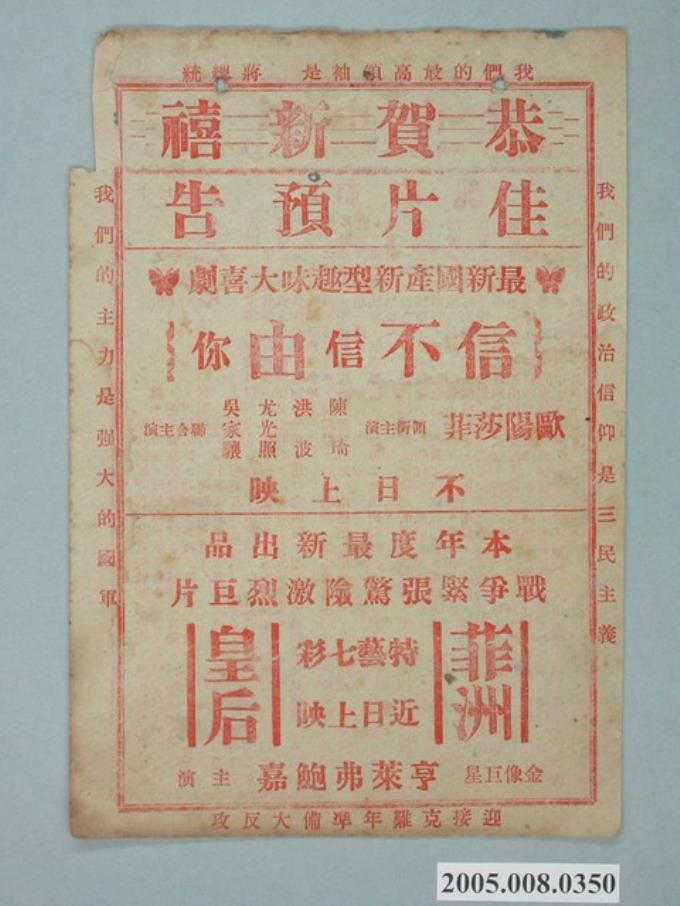 我們的最高領袖是 蔣總統
恭賀新禧
佳片預告
最新國產新型趣味大喜劇
信不信由你
歐陽莎菲
領銜主演
陳琦
洪波
尤光照
吳家驤
聯合主演
不日上映
本年度最新出品
戰爭緊張驚險激烈巨片
菲洲皇后
特藝七彩
近日上映
金像巨星
亨萊弗鮑嘉 主演
迎接克難年準備大反攻
我們的政治信仰是三民主義
我們的主力是强大的國軍
2005.008.0350